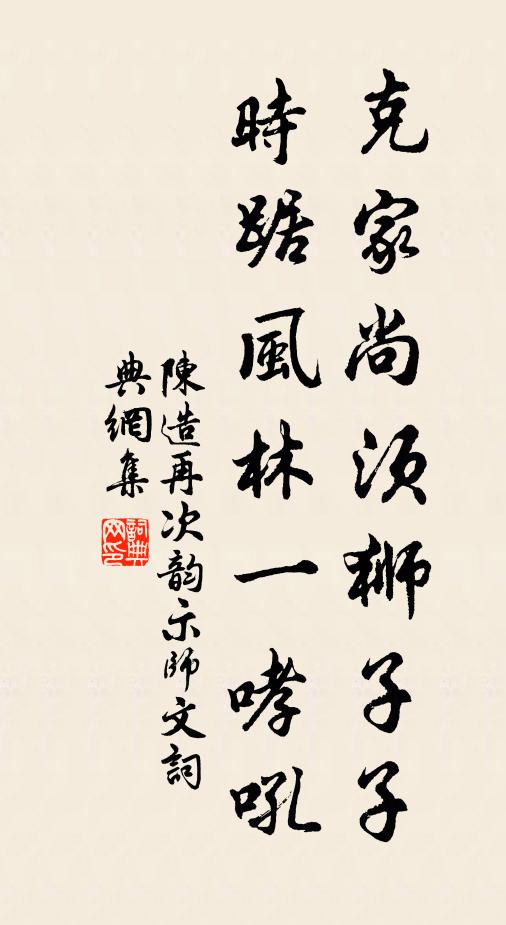 克家尚須獅子子
時踞風林一哮吼
陳造再次韵示師文詞
典網集
詞典網印